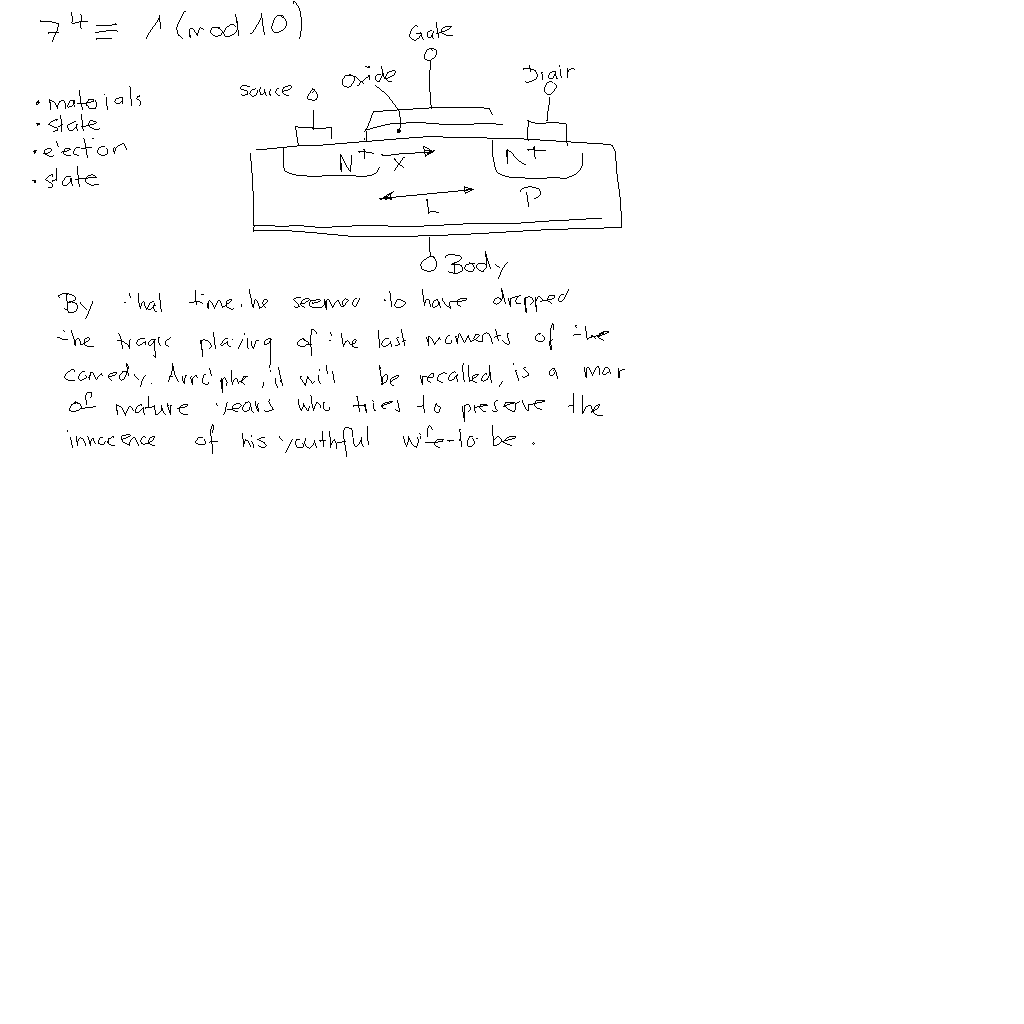 7⁴ ≡ 1 (mod 10)
• materials
• state
• election
• state
Gate
Oxide
Source
Drain
N+
X
N+
L
P
Body
By that time he seemed to have dropped
the tragic playing of the last moments of the
comedy. Arnolphe, it will be recalled, is a man
of mature years who tries to preserve the
innocence of his youthful wife-to-be.